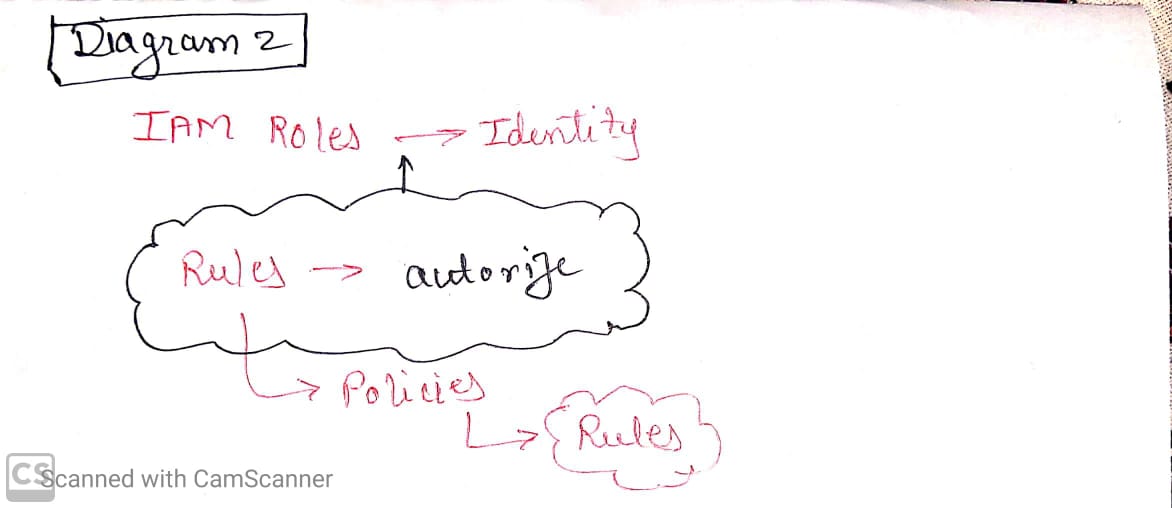 Diagram 2
IAM Roles → Identity
Rules → autorize
Policies
Rules
CS Scanned with CamScanner